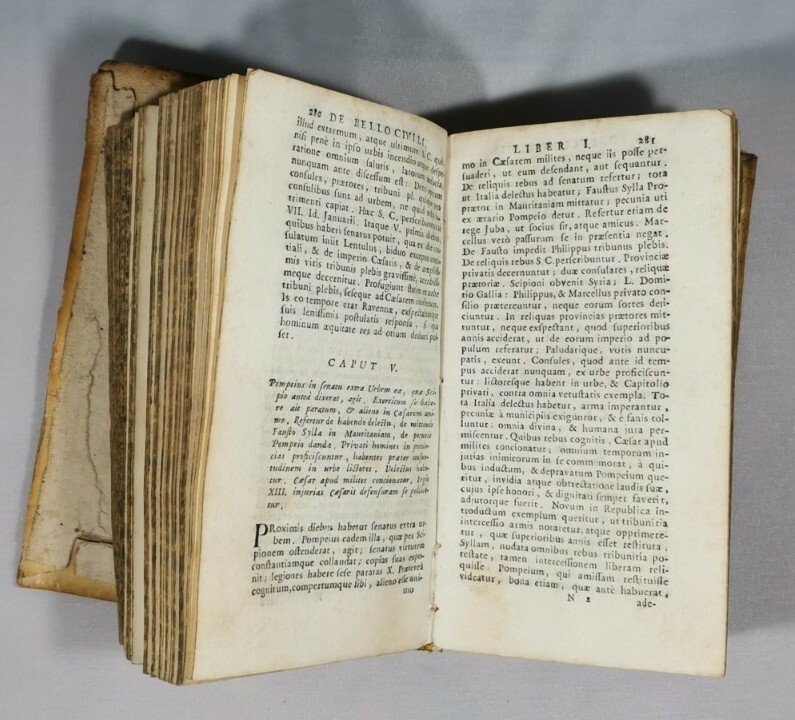 280 DE BELLO CIVILI,
illud extremum, atque ultimum S. C. quo
nisi penè in ipso urbis incendio atque despe-
ratione omnium salutis, latorum audacia,
nunquam ante discessum est: Dent operam
consules, prætores, tribuni pl. quique pro
consulibus sunt ad urbem, ne quid resp. de-
trimenti capiat. Hac S. C. perscribuntur
VII. Id. Januarii. Itaque V. primis diebus,
quibus haberi senatus potuit, qua ex die con-
sulatum iniit Lentulus, biduo excepto comi-
tiali, & de imperio Cæsaris, & de amplissi-
mis viris tribunis plebis gravissimè, acerbissi-
meque decernitur. Profugiunt statim ex urbe
tribuni plebis, seseque ad Cæsarem conferunt.
Is eo tempore erat Ravennæ, exspectabatque
suis lenissimis postulatis responsa, si qua
hominum æquitate res ad otium deduci pos-
set.
CAPUT V.
Pompeius in senatu extra Urbem ea, quæ Sci-
pio anteà dixerat, agit. Exercitum se habe-
re ait paratum, & alieno in Cæsarem ani-
mo. Refertur de habendo delectu, de mittendo
Fausto Sylla in Mauritaniam, de pecunia
Pompeio danda. Privati homines in provin-
cias proficiscuntur, habentes præter consue-
tudinem in urbe lictores. Delectus habe-
tur. Cæsar apud milites concionatur, legio
XIII. injurias Cæsaris defensuram se pollice-
tur.
PRoximis diebus habetur senatus extra ur-
bem. Pompeius eadem illa, quæ per Sci-
pionem ostenderat, agit; senatus virtutem
constantiamque collaudat; copias suas expo-
nit; legiones habere sese paratas X. Præterea
cognitum, compertumque sibi, alieno esse ani-
mo
LIBER I. 281
mo in Cæsarem milites, neque iis posse per-
suaderi, ut eum defendant, aut sequantur.
De reliquis rebus ad senatum refertur; tota
ut Italia delectus habeatur; Faustus Sylla Pro-
prætor in Mauritaniam mittatur; pecunia uti
ex ærario Pompeio detur. Refertur etiam de
rege Juba, ut socius sit, atque amicus. Mar-
cellus verò passurum se in præsentia negat.
De Fausto impedit Philippus tribunus plebis.
De reliquis rebus S C perscribuntur. Provinciæ
privatis decernuntur; duæ consulares, reliquæ
prætoriæ. Scipioni obvenit Syria; L. Domi-
tio Gallia: Philippus, & Marcellus privato con-
silio prætereuntur, neque eorum sortes deji-
ciuntur. In reliquas provincias prætores mit-
tuntur, neque exspectant, quod superioribus
annis acciderat, ut de eorum imperio ad po-
pulum referatur; Paludatique, votis nuncu-
patis, exeunt. Consules, quod ante id tem-
pus acciderat nunquam, ex urbe proficiscun-
tur: lictoresque habent in urbe, & Capitolio
privati, contra omnia vetustatis exempla. To-
ta Italia delectus habetur, arma imperantur,
pecuniæ à municipiis exiguntur, & e fanis tol-
luntur: omnia divina; & humana jura per-
miscentur. Quibus rebus cognitis. Cæsar apud
milites concionatur; omnium temporum in-
jurias inimicorum in se commemorat, à qui-
bus inductum, & depravatum Pompeium que-
ritur, invidia atque obtrectatione laudis suæ,
cujus ipse honori, & dignitati semper faverit,
adjutorque fuerit. Novum in Republica in-
troductum exemplum queritur, ut tribunitia
intercessio armis notaretur, atque opprimere-
tur, quæ superioribus annis esset restituta.
Syllam, nudata omnibus rebus tribunitia po-
testate, tamen intercessionem liberam reli-
quisse. Pompeium, qui amissam restituisse
videatur, bona etiam, quæ ante habuerat,
N 2 ade-